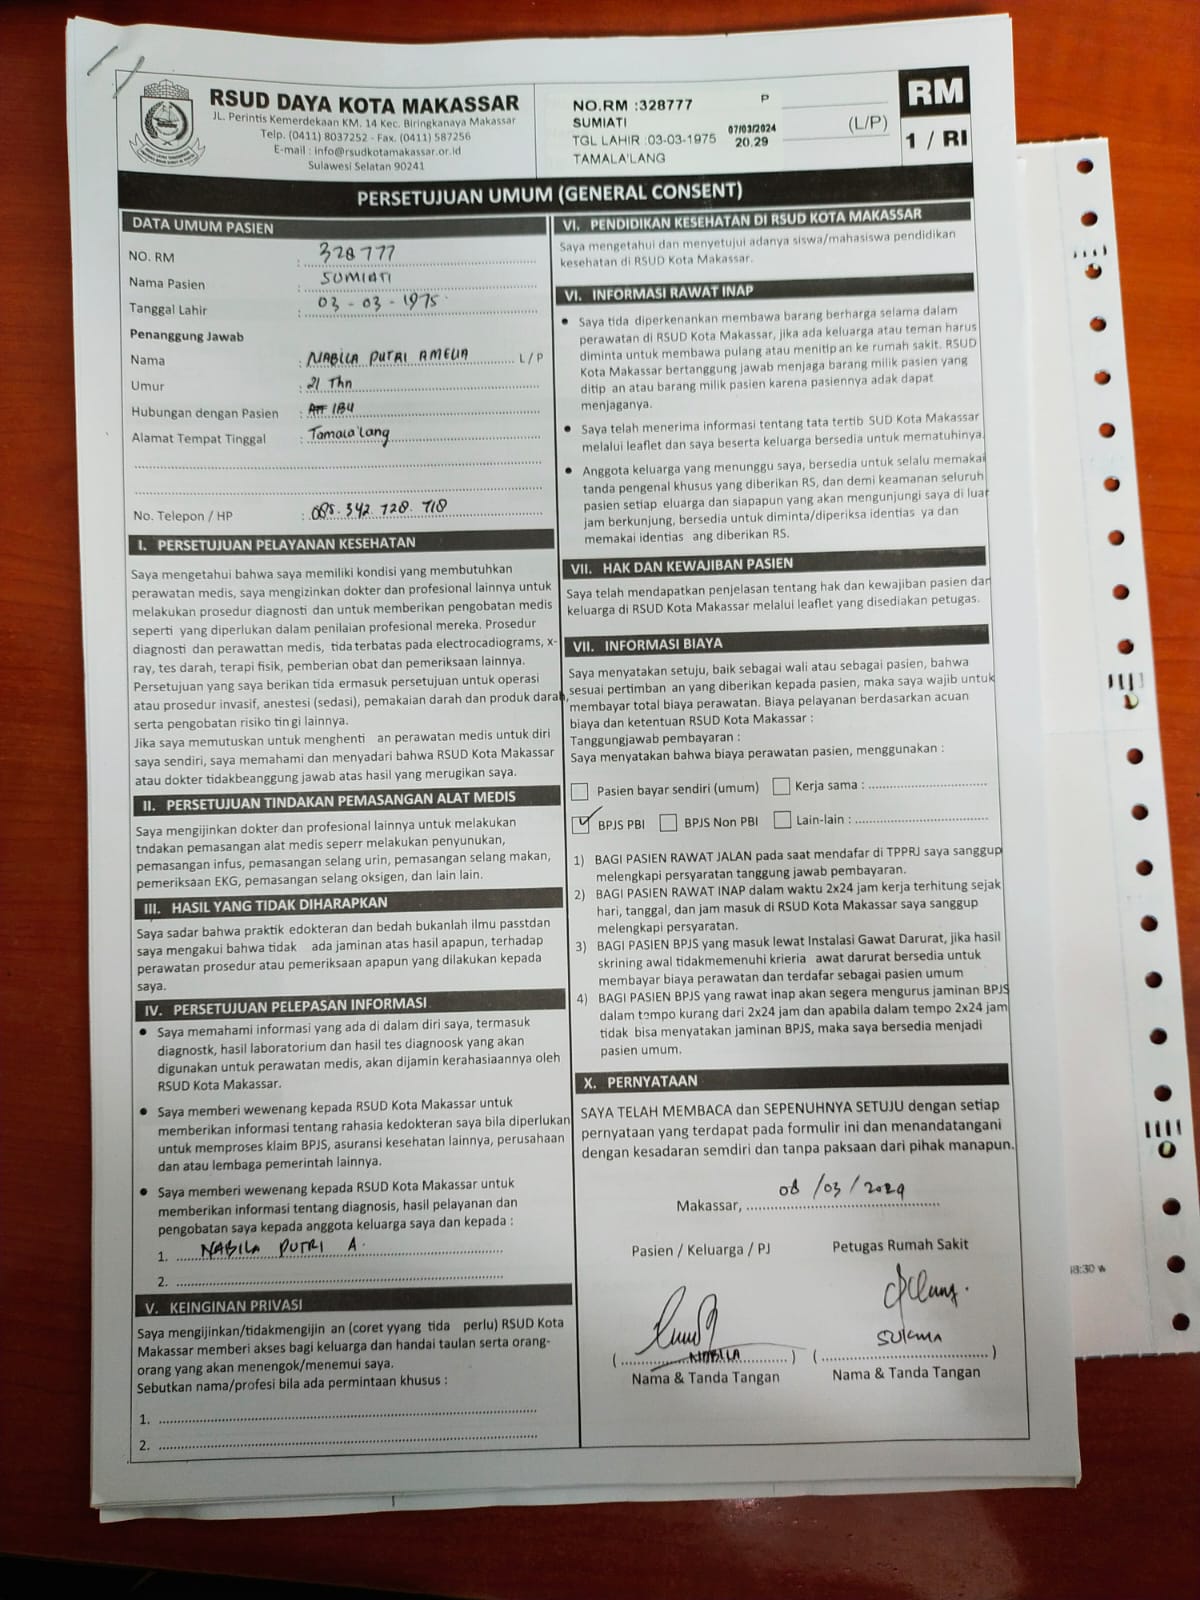 RSUD DAYA KOTA MAKASSAR
JL. Perintis Kemerdekaan KM. 14 Kec. Biringkanaya Makassar
Telp. (0411) 8037252 - Fax. (0411) 587256
E-mail : info@rsudkotamakassar.or.id
Sulawesi Selatan 90241
NO.RM :328777 P
SUMIATI
TGL LAHIR :03-03-1975
TAMALA'LANG
07/03/2024
20.29
(L/P)
RM
1 / RI
PERSETUJUAN UMUM (GENERAL CONSENT)
DATA UMUM PASIEN
NO. RM : 328777
Nama Pasien SUMIATI
Tanggal Lahir : 03 - 03 - 1975
Penanggung Jawab
Nama : NABILA PUTRI AMELIA L / P
Umur : 21 Thn
Hubungan dengan Pasien : IBU
Alamat Tempat Tinggal : Tamala'lang
No. Telepon / HP : 085. 342 728 718
I. PERSETUJUAN PELAYANAN KESEHATAN
Saya mengetahui bahwa saya memiliki kondisi yang membutuhkan
perawatan medis, saya mengizinkan dokter dan profesional lainnya untuk
melakukan prosedur diagnosti dan untuk memberikan pengobatan medis
seperti yang diperlukan dalam penilaian profesional mereka. Prosedur
diagnosti dan perawattan medis, tida terbatas pada electrocadiograms, x-
ray, tes darah, terapi fisik, pemberian obat dan pemeriksaan lainnya.
Persetujuan yang saya berikan tida ermasuk persetujuan untuk operasi
atau prosedur invasif, anestesi (sedasi), pemakaian darah dan produk darah,
serta pengobatan risiko tingi lainnya.
Jika saya memutuskan untuk menghenti an perawatan medis untuk diri
saya sendiri, saya memahami dan menyadari bahwa RSUD Kota Makassar
atau dokter tidakbeanggung jawab atas hasil yang merugikan saya.
II. PERSETUJUAN TINDAKAN PEMASANGAN ALAT MEDIS
Saya mengijinkan dokter dan profesional lainnya untuk melakukan
tndakan pemasangan alat medis seperr melakukan penyunukan,
pemasangan infus, pemasangan selang urin, pemasangan selang makan,
pemeriksaan EKG, pemasangan selang oksigen, dan lain lain.
III. HASIL YANG TIDAK DIHARAPKAN
Saya sadar bahwa praktik edokteran dan bedah bukanlah ilmu passtdan
saya mengakui bahwa tidak ada jaminan atas hasil apapun, terhadap
perawatan prosedur atau pemeriksaan apapun yang dilakukan kepada
saya.
IV. PERSETUJUAN PELEPASAN INFORMASI
• Saya memahami informasi yang ada di dalam diri saya, termasuk
diagnostk, hasil laboratorium dan hasil tes diagnoosk yang akan
digunakan untuk perawatan medis, akan dijamin kerahasiaannya oleh
RSUD Kota Makassar.
• Saya memberi wewenang kepada RSUD Kota Makassar untuk
memberikan informasi tentang rahasia kedokteran saya bila diperlukan
untuk memproses klaim BPJS, asuransi kesehatan lainnya, perusahaan
dan atau lembaga pemerintah lainnya.
• Saya memberi wewenang kepada RSUD Kota Makassar untuk
memberikan informasi tentang diagnosis, hasil pelayanan dan
pengobatan saya kepada anggota keluarga saya dan kepada :
1. NABILA PUTRI A.
2.
V. KEINGINAN PRIVASI
Saya mengijinkan/tidakmengijin an (coret yyang tida perlu) RSUD Kota
Makassar memberi akses bagi keluarga dan handai taulan serta orang-
orang yang akan menengok/menemui saya.
Sebutkan nama/profesi bila ada permintaan khusus :
1.
2.
VI. PENDIDIKAN KESEHATAN DI RSUD KOTA MAKASSAR
Saya mengetahui dan menyetujui adanya siswa/mahasiswa pendidikan
kesehatan di RSUD Kota Makassar.
VI. INFORMASI RAWAT INAP
• Saya tida diperkenankan membawa barang berharga selama dalam
perawatan di RSUD Kota Makassar, jika ada keluarga atau teman harus
diminta untuk membawa pulang atau menitip an ke rumah sakit. RSUD
Kota Makassar bertanggung jawab menjaga barang milik pasien yang
ditip an atau barang milik pasien karena pasiennya adak dapat
menjaganya.
• Saya telah menerima informasi tentang tata tertib SUD Kota Makassar
melalui leaflet dan saya beserta keluarga bersedia untuk mematuhinya.
• Anggota keluarga yang menunggu saya, bersedia untuk selalu memakai
tanda pengenal khusus yang diberikan RS, dan demi keamanan seluruh
pasien setiap eluarga dan siapapun yang akan mengunjungi saya di luar
jam berkunjung, bersedia untuk diminta/diperiksa identias ya dan
memakai identias ang diberikan RS.
VII. HAK DAN KEWAJIBAN PASIEN
Saya telah mendapatkan penjelasan tentang hak dan kewajiban pasien dan
keluarga di RSUD Kota Makassar melalui leaflet yang disediakan petugas.
VII. INFORMASI BIAYA
Saya menyatakan setuju, baik sebagai wali atau sebagai pasien, bahwa
sesuai pertimban an yang diberikan kepada pasien, maka saya wajib untuk
membayar total biaya perawatan. Biaya pelayanan berdasarkan acuan
biaya dan ketentuan RSUD Kota Makassar :
Tanggungjawab pembayaran :
Saya menyatakan bahwa biaya perawatan pasien, menggunakan :
Pasien bayar sendiri (umum) Kerja sama :
✓ BPJS PBI BPJS Non PBI Lain-lain :
1) BAGI PASIEN RAWAT JALAN pada saat mendafar di TPPRJ saya sanggup
melengkapi persyaratan tanggung jawab pembayaran.
2) BAGI PASIEN RAWAT INAP dalam waktu 2x24 jam kerja terhitung sejak
hari, tanggal, dan jam masuk di RSUD Kota Makassar saya sanggup
melengkapi persyaratan.
3) BAGI PASIEN BPJS yang masuk lewat Instalasi Gawat Darurat, jika hasil
skrining awal tidakmemenuhi krieria awat darurat bersedia untuk
membayar biaya perawatan dan terdafar sebagai pasien umum
4) BAGI PASIEN BPJS yang rawat inap akan segera mengurus jaminan BPJS
dalam tempo kurang dari 2x24 jam dan apabila dalam tempo 2x24 jam
tidak bisa menyatakan jaminan BPJS, maka saya bersedia menjadi
pasien umum.
X. PERNYATAAN
SAYA TELAH MEMBACA dan SEPENUHNYA SETUJU dengan setiap
pernyataan yang terdapat pada formulir ini dan menandatangani
dengan kesadaran semdiri dan tanpa paksaan dari pihak manapun.
Makassar, 08 / 03 / 2024
Pasien / Keluarga / PJ Petugas Rumah Sakit
( NABILA ) ( SUKMA )
Nama & Tanda Tangan Nama & Tanda Tangan